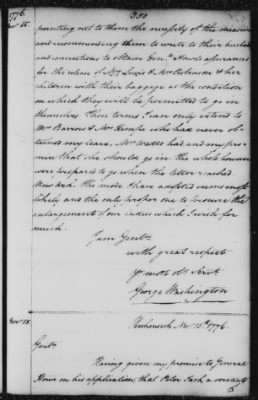 1776.
350
Nov. 15.
pointing out to them the necessity of the measure
and recommending them to write to their husbands
and connections to obtain Genl. Howe's assurances
for the return of Mrs. Lewis & Mrs. Robinson & their
children with their baggage as the condition
on which they will be permitted to go in
themselves. These terms I can only extend to
Mrs. Barrow & Mrs. Kempe who had never ob-
tained my leave. Mrs. Watts had and my pro-
mise that she should go in the whole however
were prepared to go when the letter reached
New Ark. The mode I have adopted seems most
likely and the only proper one to procure the
enlargement of our ladies which I wish for
much.
I am Gentn.
with great respect
Yr. most Ob. Servt.
George Washington
Nov. 15.
Peekskill Nov. 15th 1776.
Gentn.
Having given my promise to General
Howe on his application, that Peter Jack a servant